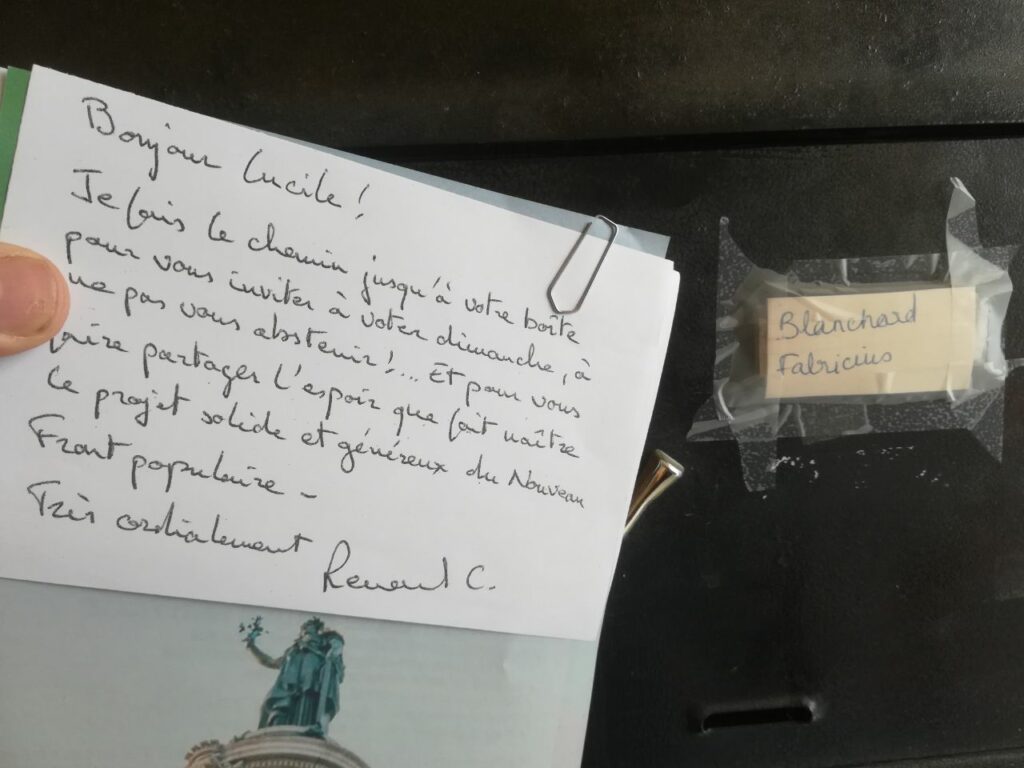 Bonjour Lucile !
Je fais le chemin jusqu'à votre boîte
pour vous inviter à voter dimanche, à
ne pas vous abstenir !... Et pour vous
faire partager l'espoir que fait naître
le projet solide et généreux du Nouveau
Front populaire -
Très cordialement
Renaud C.
Blanchard
Fabricius